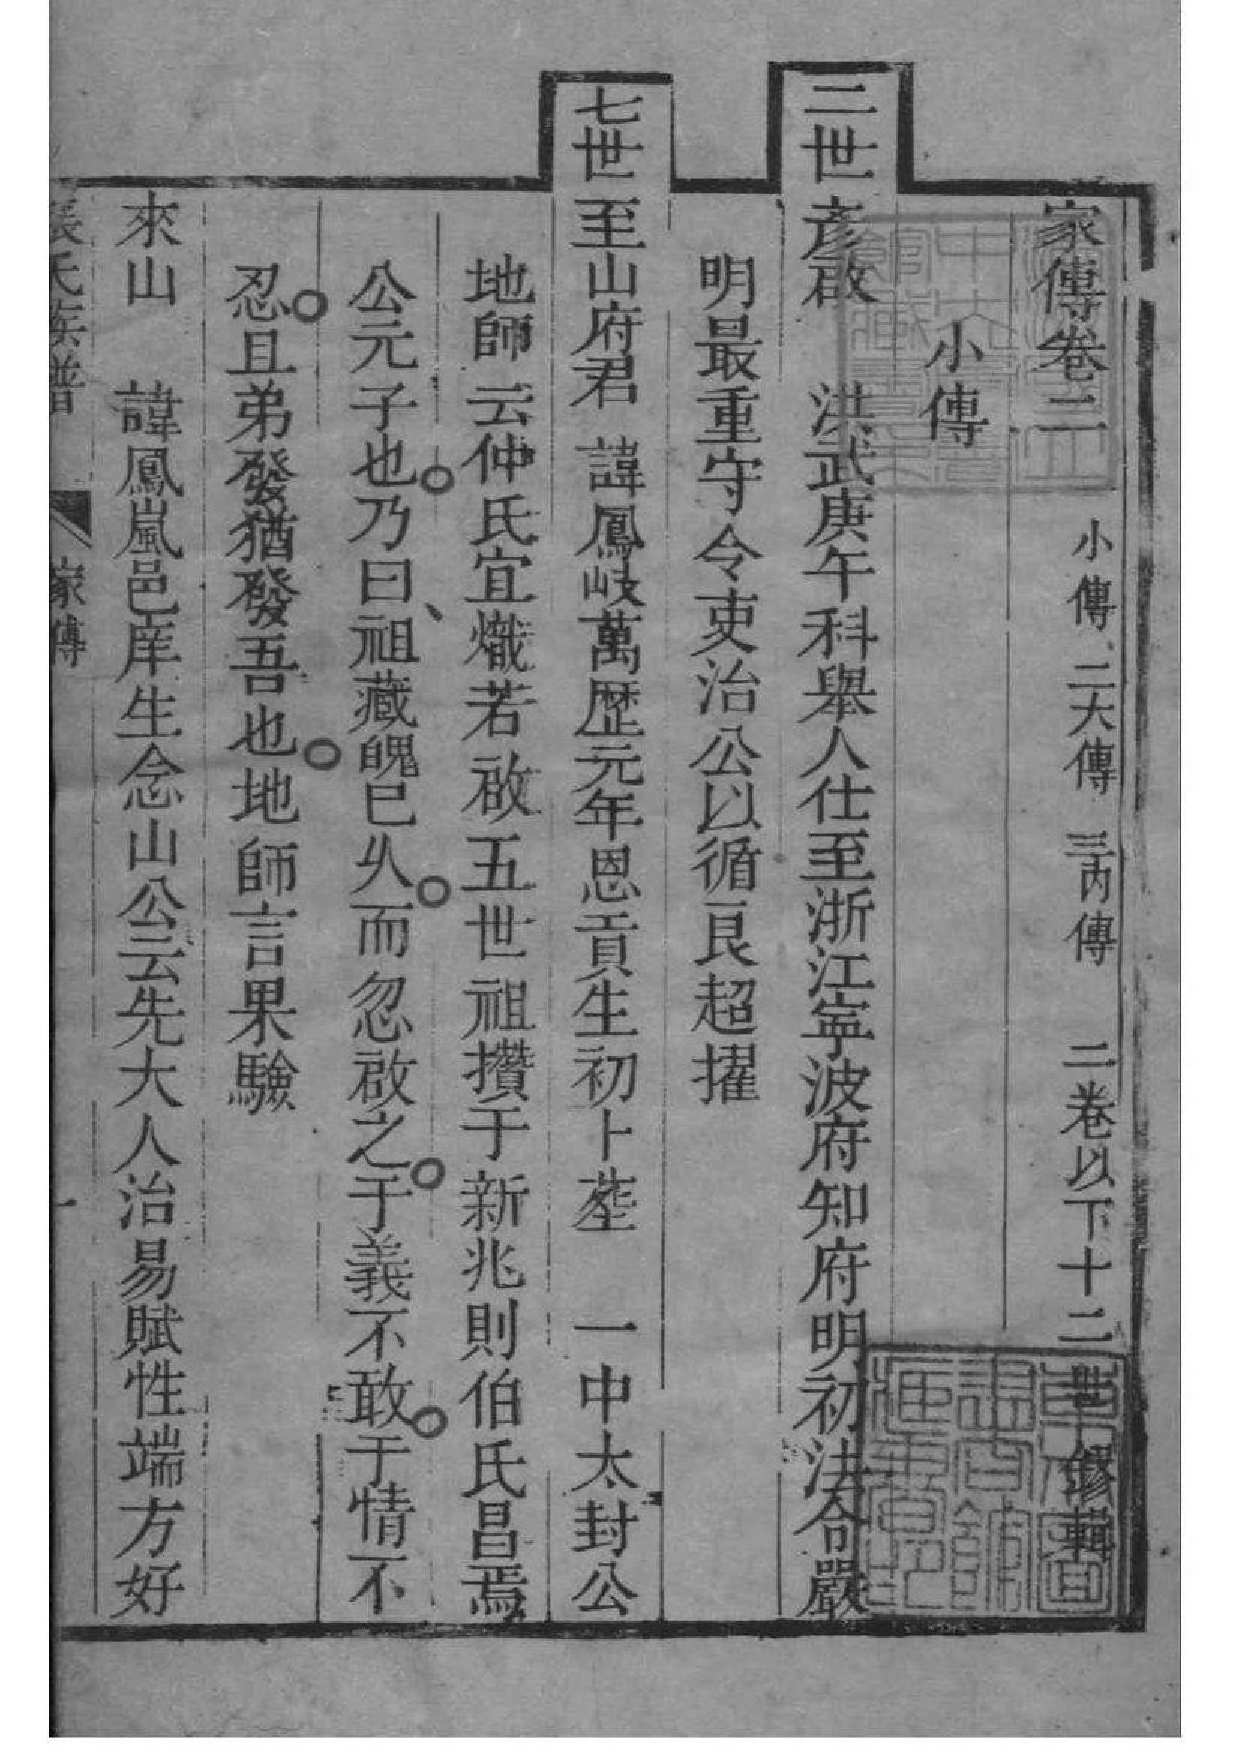 家傳卷二 小傳 二大傳 三内傳 二卷以下十二世修輯
小傳
二世彥啟 洪武庚午科舉人仕至浙江寧波府知府明初法令嚴
明最重守令吏治公以循良超擢
七世至山府君 諱鳳岐萬歷元年恩貢生初卜塟 一中太封公
地師云仲氏宜熾若啟五世祖攢于新兆則伯氏昌焉
公元子也乃曰祖藏魄已久而忽啟之于義不敢于情不
忍且弟發猶發吾也地師言果驗
來山 諱鳳嵐邑庠生念山公云先大人治易賦性端方好
張氏族譜 家傳 一